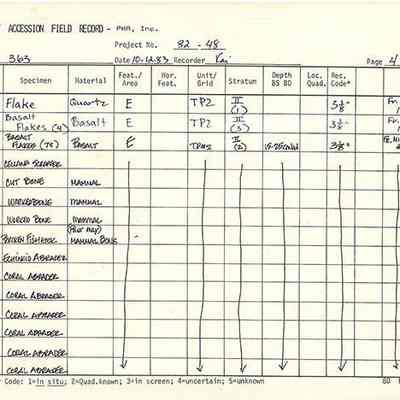 ACCESSION FIELD RECORD - PHRI, Inc.
Project No. 82-48
363 Date 10-12-83 Recorder Page 4
Specimen Material Feat./ Area Hor. Feat. Unit/ Grid Stratum Depth BS BD Loc. Quad. Res. Code*
Flake Quartz E TP2 II (1) 3 1/8" Fr,
Basalt Flakes (4) Basalt E TP2 II (5) 3 1/8"
Basalt Flakes (78) Basalt E II (2) 3 1/8"
Scraper
Cut Bone Mammal
Worked Bone Mammal
Worked Bone Mammal
Broken Fishhook Mammal Bone
Echinoid Abrader
Coral Abrader
Coral Abrader
Coral Abrader
Coral Abrader
Coral Abrader
Coral Abrader
Code: 1=in situ; 2=Quad.known; 3=in screen; 4=uncertain; 5=unknown BD